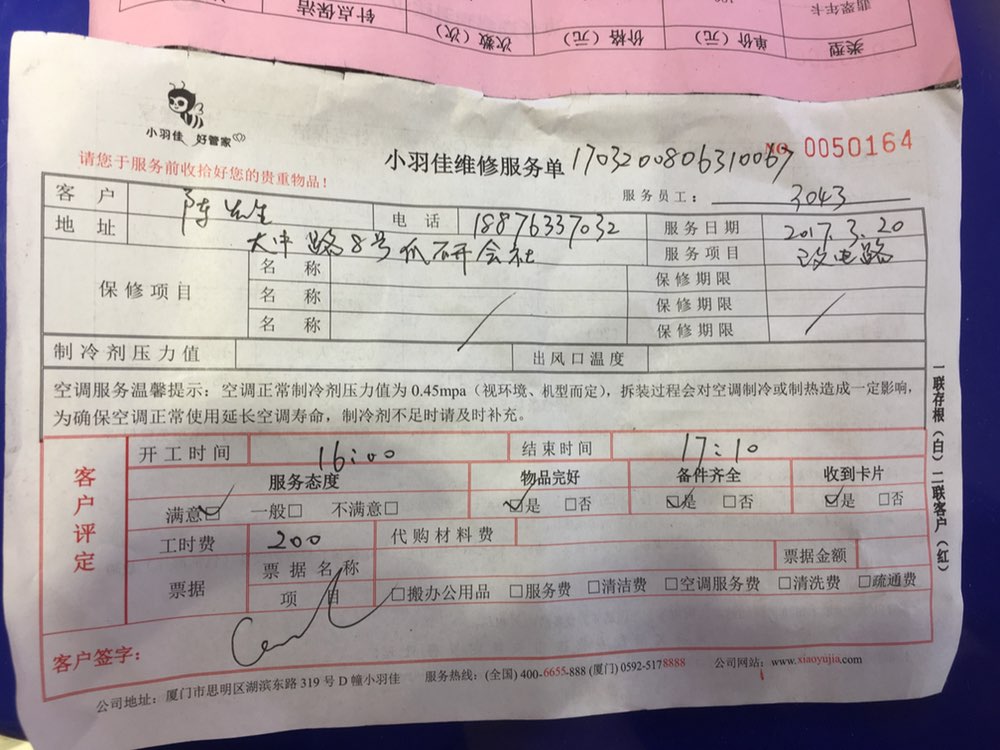 针点保洁 次数(次) 价格(元) 单价(元) 类型 翡翠年卡
小羽佳 好管家
请您于服务前收拾好您的贵重物品!
小羽佳维修服务单 1703200806310067 NO 0050164
服务员工: 3043
客户 陈先生 电话 18876337032 服务日期 2017.3.20
地址 大中路8号 服务项目 改电路
保修项目 名称 保修期限
名称 保修期限
名称 保修期限
制冷剂压力值 出风口温度
空调服务温馨提示:空调正常制冷剂压力值为 0.45mpa(视环境、机型而定),拆装过程会对空调制冷或制热造成一定影响,
为确保空调正常使用延长空调寿命,制冷剂不足时请及时补充。
客户评定
开工时间 16:00 结束时间 17:10
服务态度 物品完好 备件齐全 收到卡片
满意☑ 一般□ 不满意□ ☑是 □否 ☑是 □否 ☑是 □否
工时费 200 代购材料费
票据 票据名称 票据金额
项目 □搬办公用品 □服务费 □清洁费 □空调服务费 □清洗费 □疏通费
客户签字:
公司地址:厦门市思明区湖滨东路 319 号 D 幢小羽佳 服务热线:(全国) 400-6655-888 (厦门) 0592-5178888 公司网站:www.xiaoyujia.com
一联存根(白)二联客户(红)